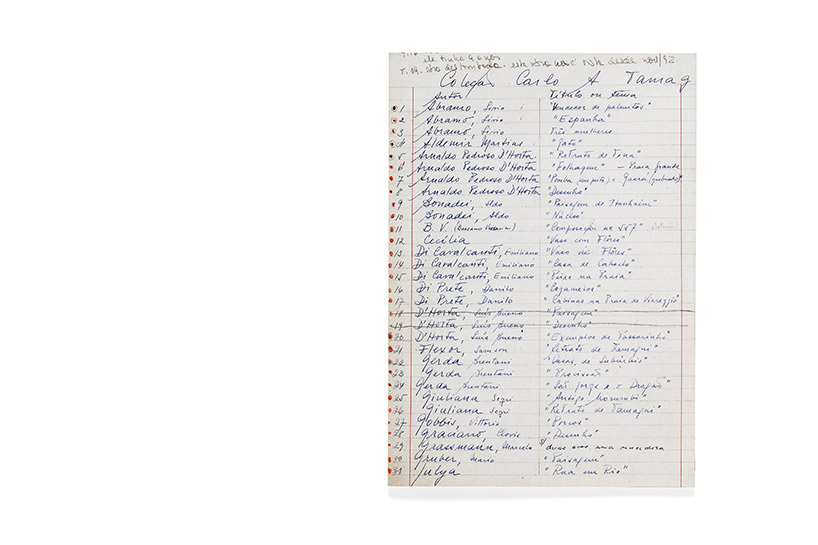 ele tinha
T. 19. desde nov/92
Coleção Carlo A Tamag
Autor Título ou tema
1 Abramo, Livio "Vendedor de palmitos"
2 Abramo, Livio "Espanha"
3 Abramo, Livio Três mulheres
4 Aldemir Martins "Gato"
5 Arnaldo Pedroso D'Horta "Retrato de Tina"
6 Arnaldo Pedroso D'Horta "Folhagem" – Praia grande
7 Arnaldo Pedroso D'Horta "Pomba e Guará (quebrado)
8 Arnaldo Pedroso D'Horta "Desenho"
9 Bonadei, Aldo "Paisagem de Itanhaém"
10 Bonadei, Aldo "Núcleo"
11 B. V. "Composição nº 557"
12 Cecília "Vaso com Flôres"
13 Di Cavalcanti, Emiliano "Vaso de Flôres"
14 Di Cavalcanti, Emiliano "Casa de Caboclo"
15 Di Cavalcanti, Emiliano "Peixe na Praia"
16 Di Prete, Danilo "Cogumelos"
17 Di Prete, Danilo "Cabinas na Praia de Viareggio
18 D'Horta, Luís Bueno "Paisagem"
19 D'Horta, Luís Bueno "Desenho"
20 D'Horta, Luís Bueno "Exemplos de Passarinho"
21 Flexor, Samson "Retrato de Tamagni"
22 Gerda Brentani "Casas de Subúrbio"
23 Gerda Brentani "Procissão"
24 Gerda Brentani "São Jorge e o Dragão"
25 Giuliana Segri "Antigo Morumbi"
26 Giuliana Segri "Retrato de Tamagni"
27 Gobbis, Vittorio "Porcos"
28 Graciano, Clovis "Desenho"
29 Grassmann, Marcelo duas aves uma
30 Gruber, Mario "Paisagem"
31 Julya "Rua em Rio"